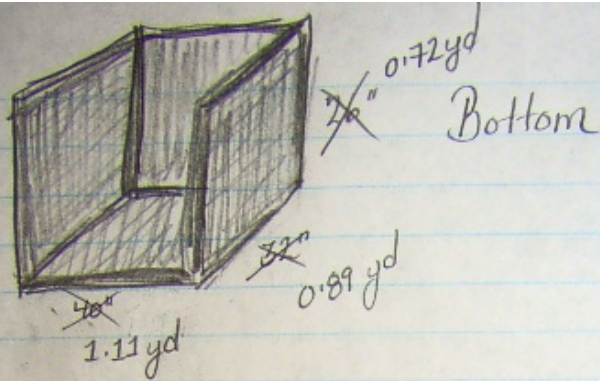 0.72yd
26"
Bottom
32"
0.89 yd
40"
1.11 yd